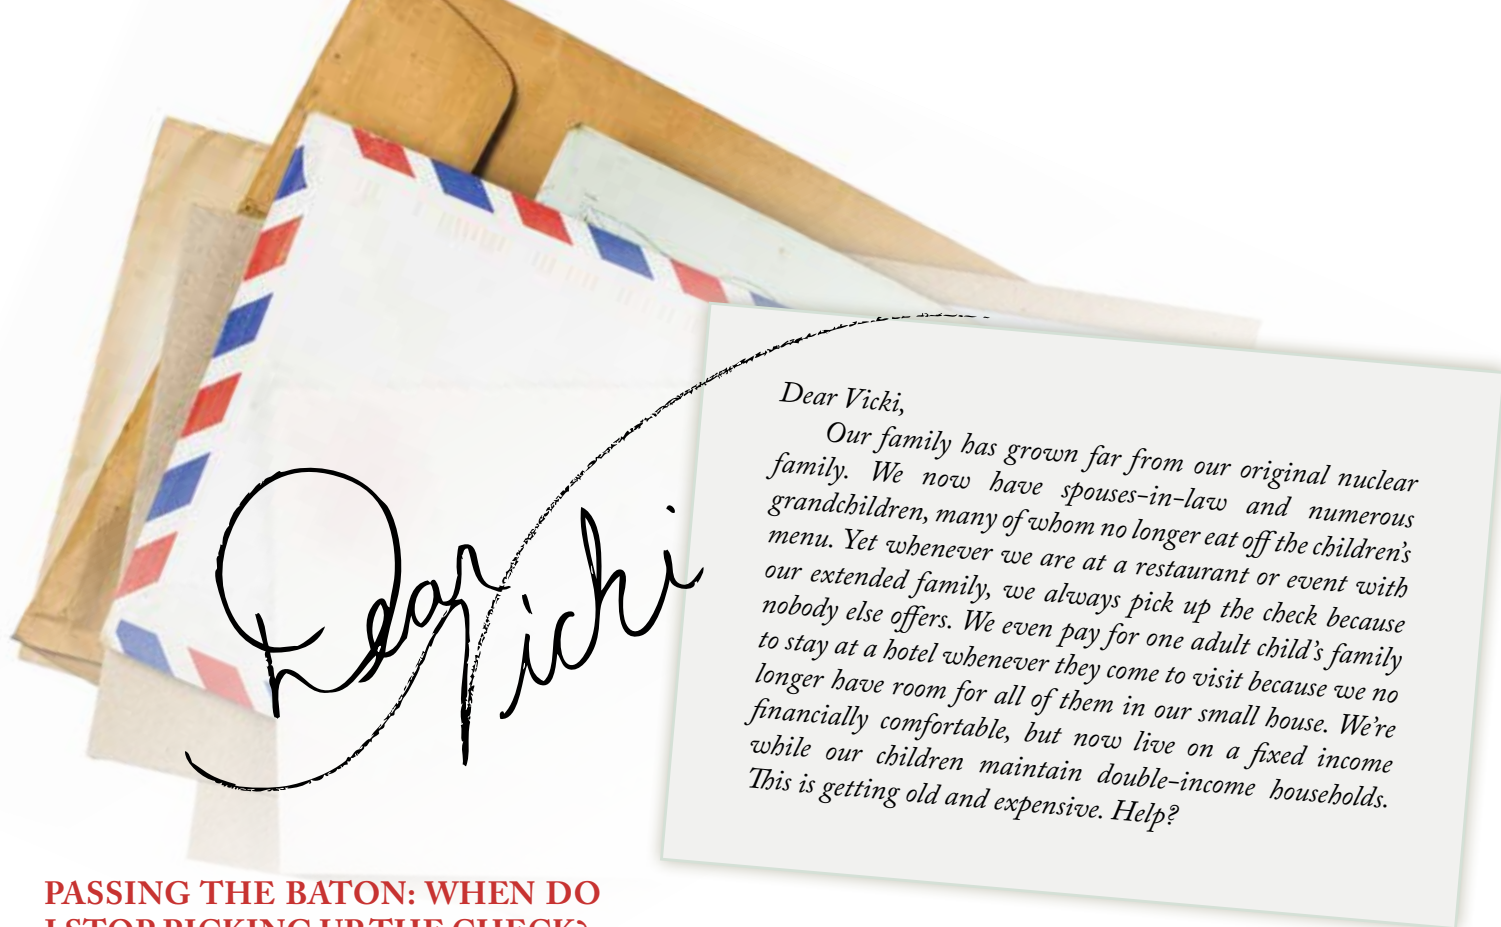 Dear Vicki
Dear Vicki,
Our family has grown far from our original nuclear
family. We now have spouses-in-law and numerous
grandchildren, many of whom no longer eat off the children's
menu. Yet whenever we are at a restaurant or event with
our extended family, we always pick up the check because
nobody else offers. We even pay for one adult child's family
to stay at a hotel whenever they come to visit because we no
longer have room for all of them in our small house. We're
financially comfortable, but now live on a fixed income
while our children maintain double-income households.
This is getting old and expensive. Help?
PASSING THE BATON: WHEN DO
I STOP PICKING UP THE CHECK?